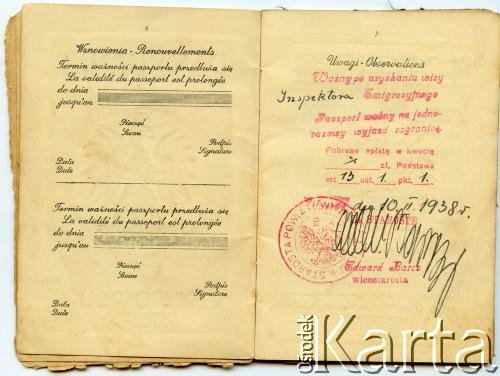 6
Wznowienia - Renouvellements
Termin ważności paszportu przedłuża się
La validité du passeport est prolongée
do dnia
jusqu'au
Pieczęć
Sceau
Podpis
Signature
Data
Date
Termin ważności paszportu przedłuża się
La validité du passeport est prolongée
do dnia
jusqu'au
Pieczęć
Sceau
Podpis
Signature
Data
Date
7
Uwagi - Observations
Ważny po uzyskaniu wizy
Inspektora Emigracyjnego
Paszport ważny na jedno-
razowy wyjazd zagranicę.
Pobrano opłatę w kwocie
x zł. Podstawa
art. 13 ust. 1 pkt. 1.
10. II. 1938 r.
STAROSTĘ
STAROSTA POWIATOWY
Edward Barcz
wicestarosta
ośrodek
Karta